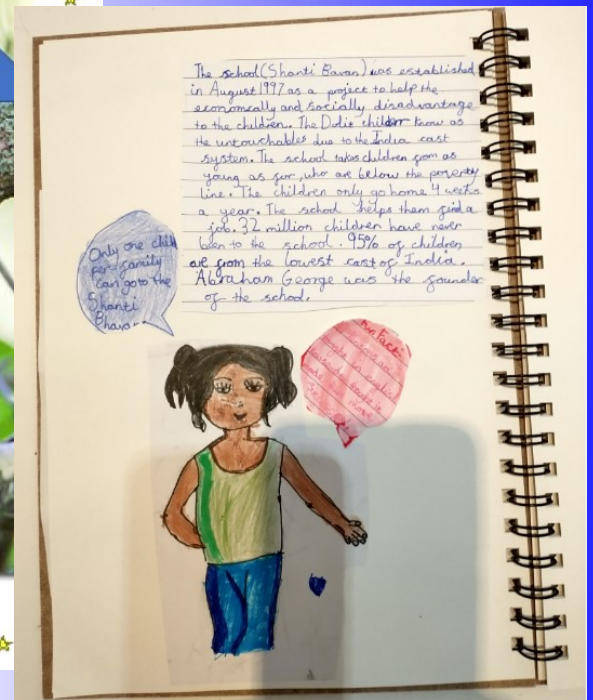 The school (Shanti Bavan) was established
in August 1997 as a project to help the
economcally and socially disadvantage
to the children. The Dolit childer know as
the untouchables due to the India cast
system. The school takes children from as
young as for, who are below the poverty
line. The children only go home 4 weeks
a year. The school helps them find a
job. 32 million children have never
been to the school. 95% of children
are from the lowest cast of India.
Abraham George was the founder
of the school.
Only one child
per family
can go to the
Shanti
Bhavan
fun fact